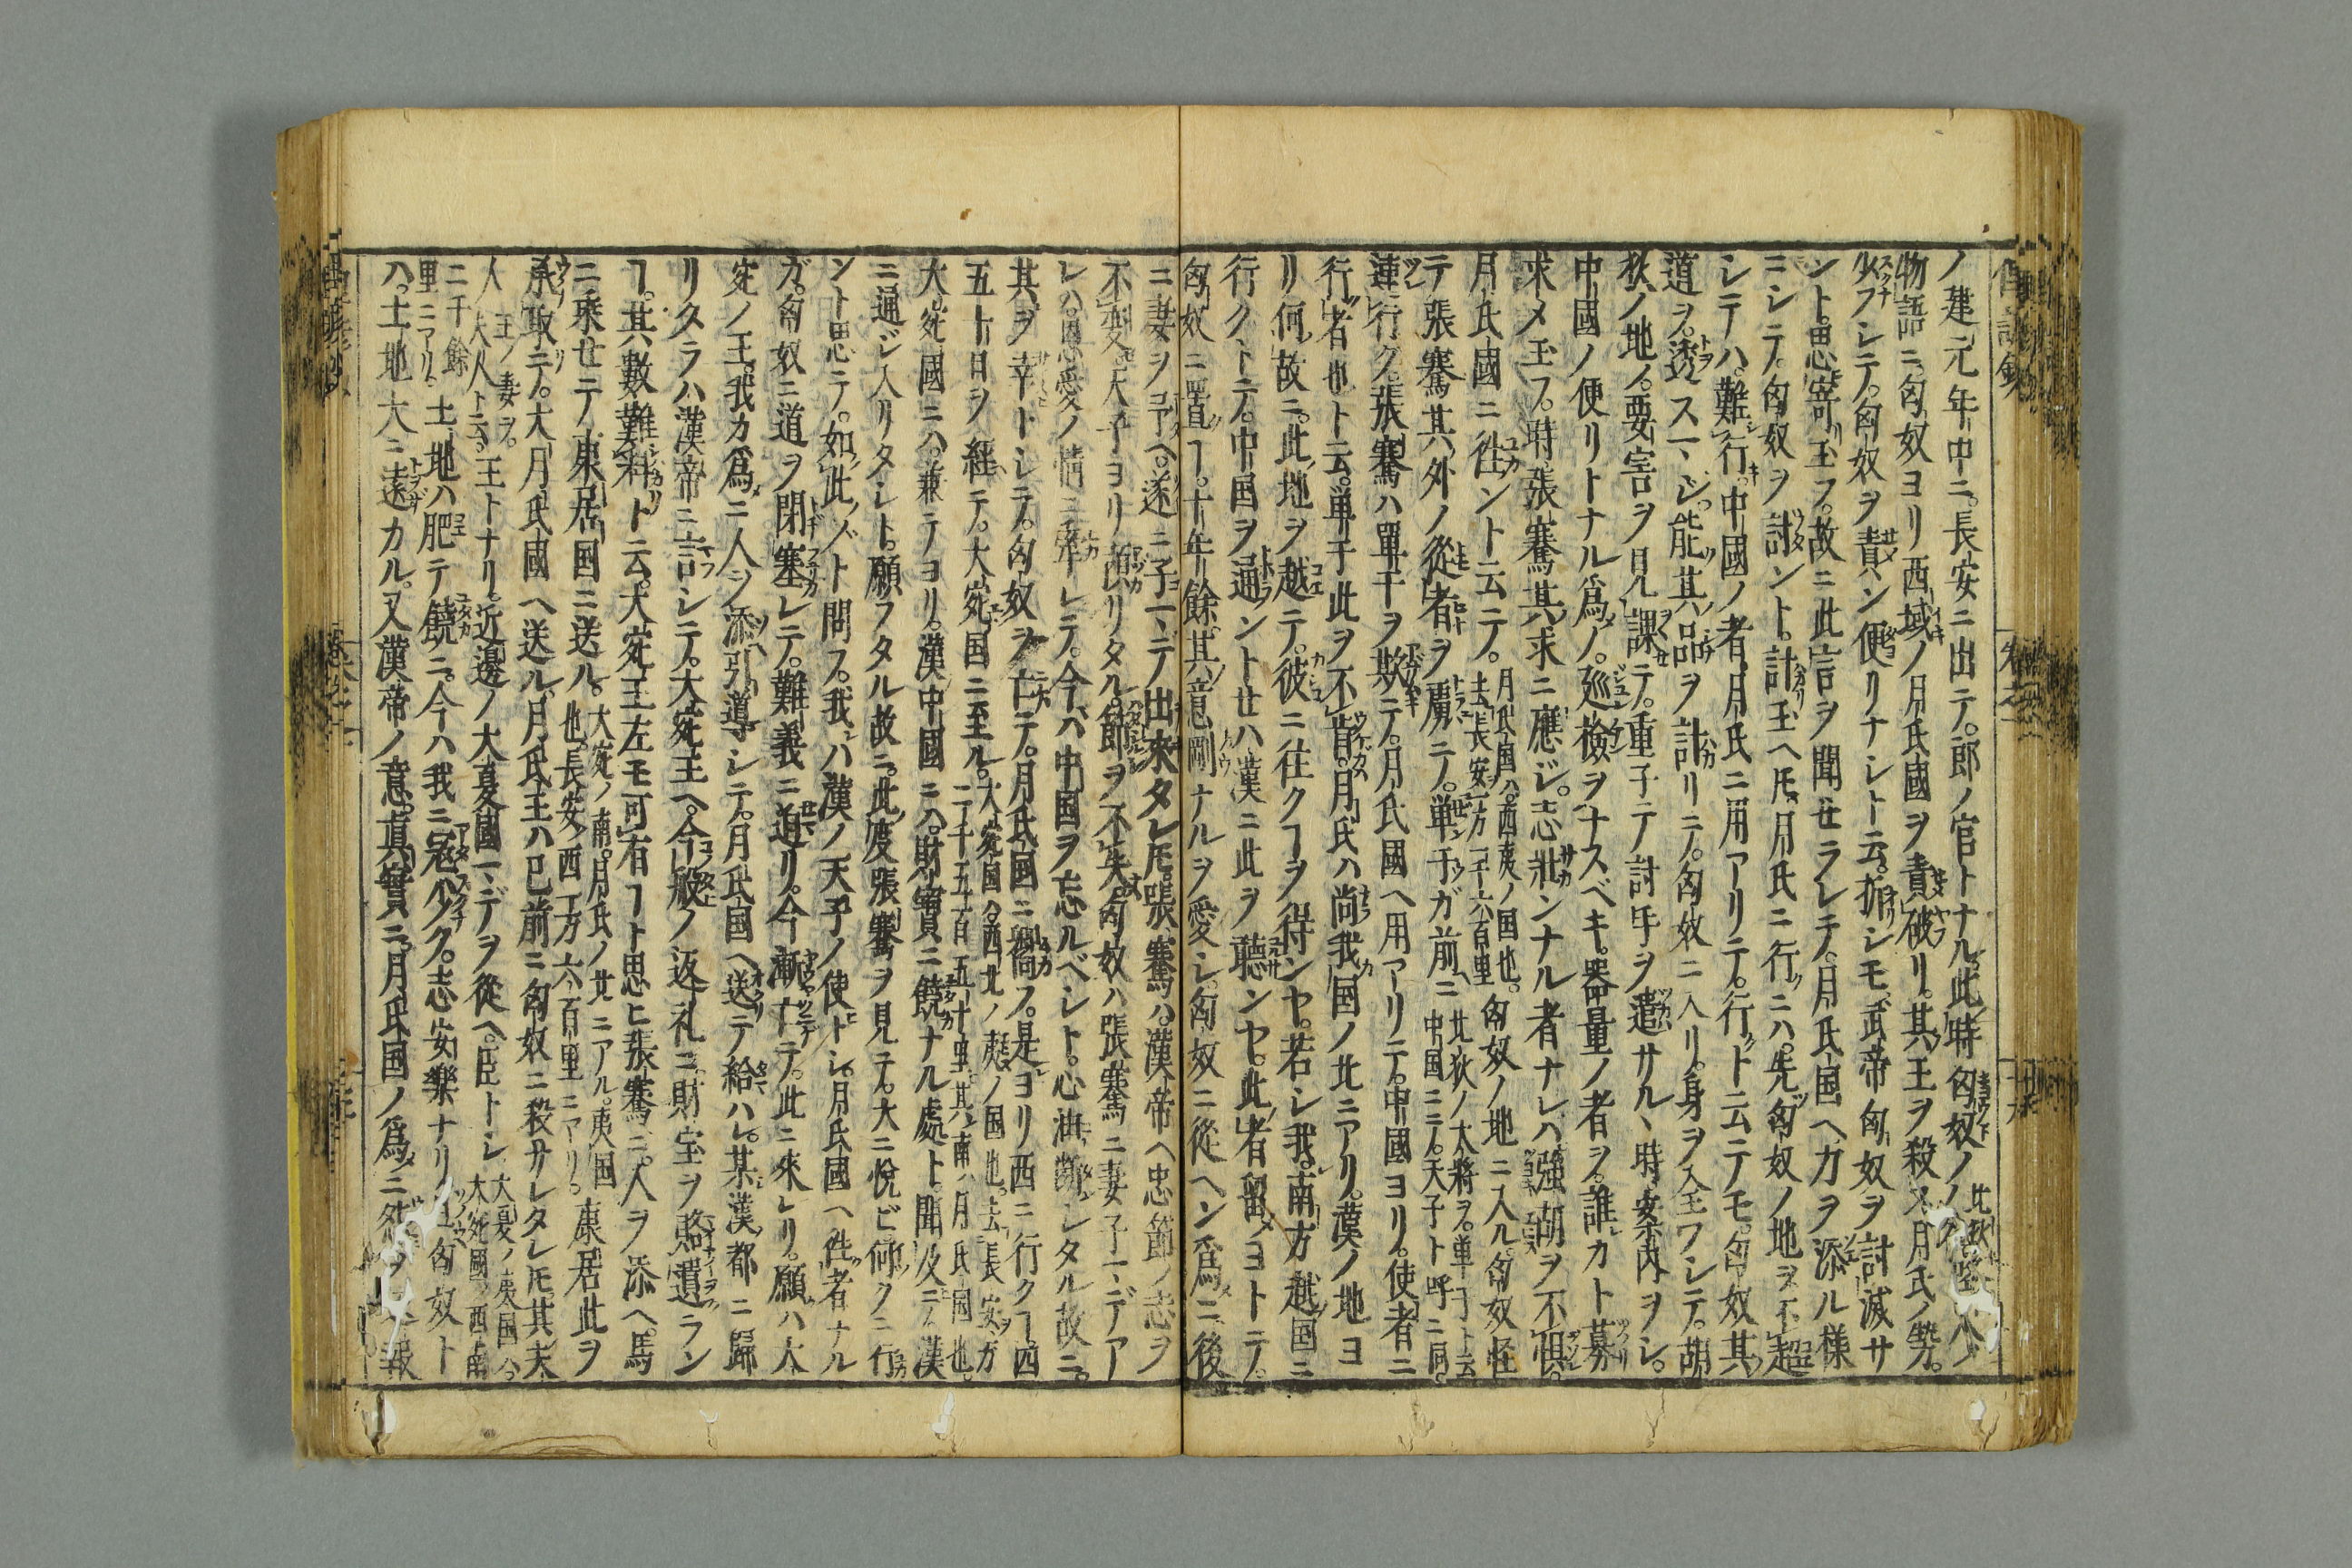 ノ建元年中ニ。長安ニ出テ。郎ノ官トナル。此時匈奴ノ
物語ニ。匈奴ヨリ西域ノ月氏國ヲ責破リ。其王ヲ殺ス。月氏ノ勢。
少フシテ。匈奴ヲ責ン便リナシト云。折シモ。武帝匈奴ヲ討滅サ
ント。思寄玉フ。故ニ此言ヲ聞セラレテ。月氏国ヘ力ヲ添ル様
ニシテ。匈奴ヲ討ント。計玉ヘ𪜈。月氏ニ行ニハ。先匈奴ノ地ヲ不超
シテハ。難行。中國ノ者。月氏ニ用アリテ。行ト云テモ。匈奴其
道ヲ。透スマジ。能其品ヲ計リテ。匈奴ニ入リ。身ヲ全ワシテ。胡
狄ノ地ノ。要害ヲ見課テ。重子テ討手ヲ遣サル丶時。案内ヲシ。
中國ノ便リトナル為ノ。廵檢ヲナスベキ。器量ノ者ヲ。誰カト募
求メ玉フ。時張騫其求ニ應ジ。志壯ンナル者ナレハ。強胡ヲ不惧。
月氏國ニ徃ント云テ。月氏国ハ。西夷ノ国也。去長安一万一千六百里匈奴ノ地ニ入ル。匈奴怪
テ張騫其外ノ從者ヲ虜ニテ。単于ガ前ニ北狄ノ大將ヲ。単于ト云中国ニテ。天子ト呼ニ同。
連行ク。張騫ハ單于ヲ欺テ。月氏國ヘ用アリテ。中國ヨリ。使者ニ
行者也ト云。単于此ヲ不肯。月氏ハ尚我国ノ北ニアリ。漢ノ地ヨ
リ何故ニ。此地ヲ越テ。彼ニ往クヿヲ得ンヤ。若シ我。南方越国ニ
行クトテ。中国ヲ通ント世ハ漢ニ此ヲ聽ンヤ。此者留メヨトテ。
匈奴ニ置ヿ。十年餘。其意剛ナルヲ愛シ。匈奴ニ從ヘン為ニ。後
ニ妻ヲ予ヘ。遂ニ子マデ出來タレ𪜈。張騫ハ。漢帝ヘ忠節ノ志ヲ
不変。天子ヨリ預リタル。節ヲ不失。匈奴ハ張騫ニ妻子マデア
レハ。恩愛ノ情ニ牽レテ。今ハ中国ヲ忘ルベシト。心油斷シタル故ニ。
其ヲ幸トシテ。匈奴ヲ亡テ。月氏國ニ嚮フ。是ヨリ西ニ行クヿ四
五十日ヲ經テ。大宛国ニ至ル。大宛国ハ。西北ノ夷ノ国也。去長安ヲガ二千五百五十里。其南ハ月氏国也。
大宛國ニハ。兼テヨリ。漢中國ニハ。財寳ニ饒ナル處ト。聞及ニ。漢
ニ通ジ入リタシト。願フタル故ニ。此度張騫ヲ見テ。大ニ悅ビ何クニ行
ント思テ。如此ゾト問フ。我ハ漢ノ天子ノ使トシ。月氏國ヘ徃者ナル
ガ。匈奴ニ道ヲ閉塞レテ。難義ニ迫リ。今漸亡テ。此ニ來レリ。願ハ大
宛ノ王。我カ為ニ人ヲ添引導シテ。月氏国ヘ送テ給ハレ。某漢都ニ歸
リタラハ漢帝ニ言シテ。大宛王ヘ。今般ノ返礼ニ財宝ヲ賂遺ラン
ヿ。其數難料ト云。大宛王左モ可有ヿト思ヒ張騫ニ。人ヲ添ヘ。馬
ニ乗セテ。康居国ニ送ル。大宛ノ南。月氏ノ北ニアル。夷国也。長安ノ西一万六百里ニアリ。康居此ヲ
承取テ。大月氏國ヘ送ル。月氏王ハ已前ニ匈奴ニ殺サレタレ𪜈。其夫
人王ノ妻ヲ。大人ト云。王トナリ。近邊ノ大夏國マデヲ從ヘ。臣トシ大夏ノ夷国ハ。大宛國ノ西南
二千餘里ニアリ。土地ハ肥テ饒ニ。今ハ我ニ冦少ク。志安樂ナリ匈奴ト
ハ。土地大ニ遠カル。又漢帝ノ意。真實ニ。月氏国ノ為ニ